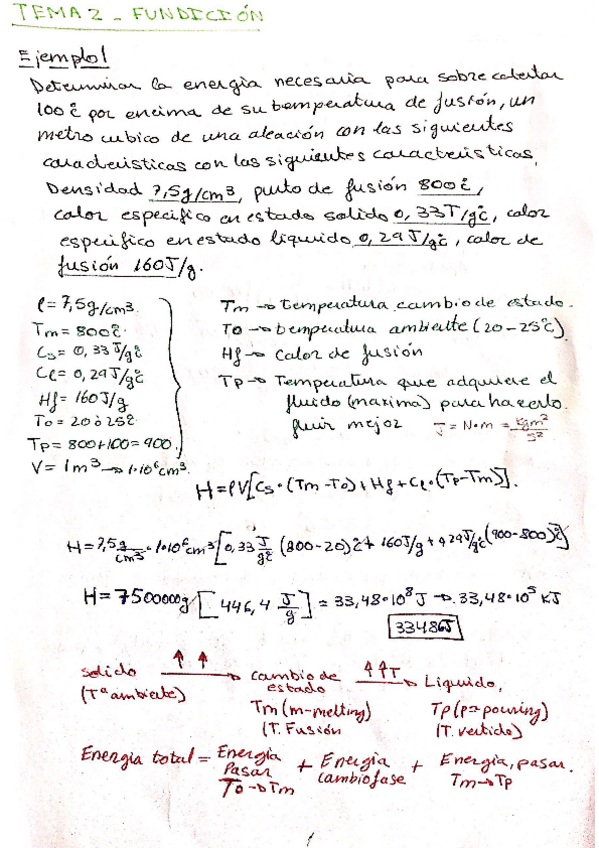 TEMA 2 - FUNDICIÓN
Ejemplo 1
Determinar la energia necesaria para sobrecalentar
100ºC por encima de su temperatura de fusión, un
metro cubico de una aleación con las siguientes
caracteristicas con las siguientes caracteristicas.
Densidad 7,5g/cm3, punto de fusión 800ºC,
calor especifico en estado solido 0,33J/gºC, calor
especifico en estado liquido 0,29J/gºC, calor de
fusión 160J/g.
ρ = 7,5g/cm3.
Tm = 800ºC
Cs = 0,33 J/gºC
Cl = 0,29J/gºC
Hf = 160J/g
To = 20 ó 25ºC
Tp = 800+100 = 900
V = 1m3 → 1·10⁶cm3.
Tm → temperatura cambio de estado.
To → temperatura ambiente (20-25ºC)
Hf → Calor de fusión
Tp → Temperatura que adquiere el
fluido (maxima) para hacerlo
fluir mejor J = N·m = kgm²/s²
H = ρV[Cs·(Tm-To)+Hf+Cl·(Tp-Tm)].
H = 7,5g/cm3·1·10⁶cm3[0,33 J/gºC (800-20)ºC + 160J/g + 0,29J/gºC(900-800)ºC]
H = 7500000g [446,4 J/g] = 33,48·10⁸J → 33,48·10⁵ KJ
3348GJ
solido ↑↑ → cambio de estado ↑↑T → Liquido,
(Tª ambiente) Tm (m-melting) Tp (p→pouring)
(T. Fusión (T. vertido)
Energia total = Energia + Energia + Energia, pasar.
Pasar cambio fase Tm→Tp
To→Tm
1